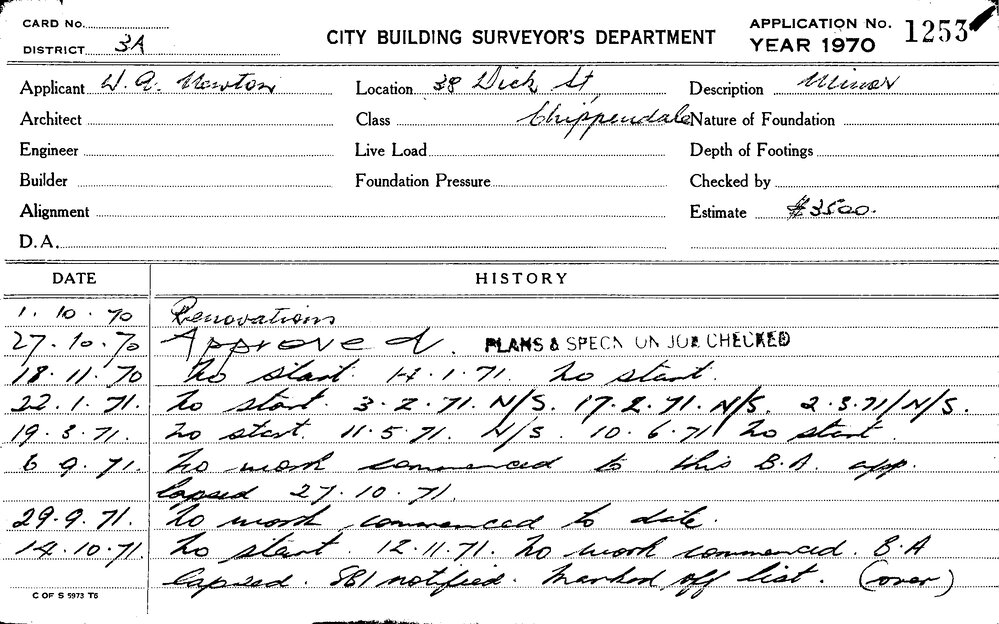 CARD No.
DISTRICT 3A
CITY BUILDING SURVEYOR'S DEPARTMENT
APPLICATION No. 1253
YEAR 1970
Applicant W. A. Newton
Location 38 Dick St,
Description Minor
Architect
Class Chippendale
Nature of Foundation
Engineer
Live Load
Depth of Footings
Builder
Foundation Pressure
Checked by
Alignment
Estimate $3500.
D.A.
DATE HISTORY
1. 10. 70 Renovations
27.10.70 Approved. PLANS & SPECN ON JOB CHECKED
18.11.70 No start. 14.1.71. No start.
22.1.71. No start. 3.2.71. N/S. 17.2.71. N/S. 2.3.71/N/S.
19.3.71. No start. 11.5.71. N/S. 10.6.71 No start.
6 9. 71. No work commenced to this B.A. app.
lapsed 27.10.71.
29.9.71. No work commenced to date.
14.10.71. No start. 12.11.71. No work commenced. B.A
lapsed. SBI notified. Marked off list. (over)
C OF S 5973 T6